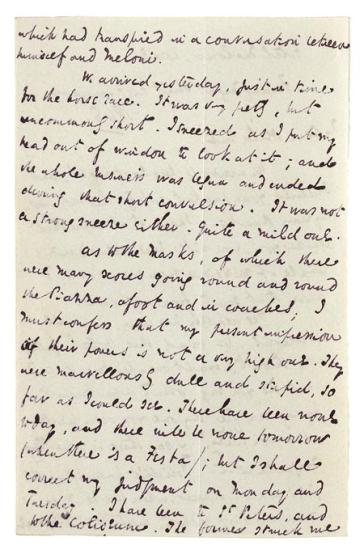 which had transpired in a conversation between
himself and Meloni.
We arrived yesterday, just in time
for the horse race. It was very pretty, but
uncommonly short. I sneezed as I put my
head out of window to look at it; and
the whole business was begun and ended
during that short convulsion. It was not
a strong sneeze either. Quite a mild one.
As to the Masks, of which there
were many scores going round and round
the Piazza, afoot and in coaches; I
must confess that my present impression
of their powers is not a very high one. They
were marvellously dull and stupid, so
far as I could see. There have been none
today, and there will be none tomorrow
(when there is a Festa); but I shall
correct my judgment on Monday and
Tuesday. I have been to St Peters, and
to the Coliseum. The former struck me